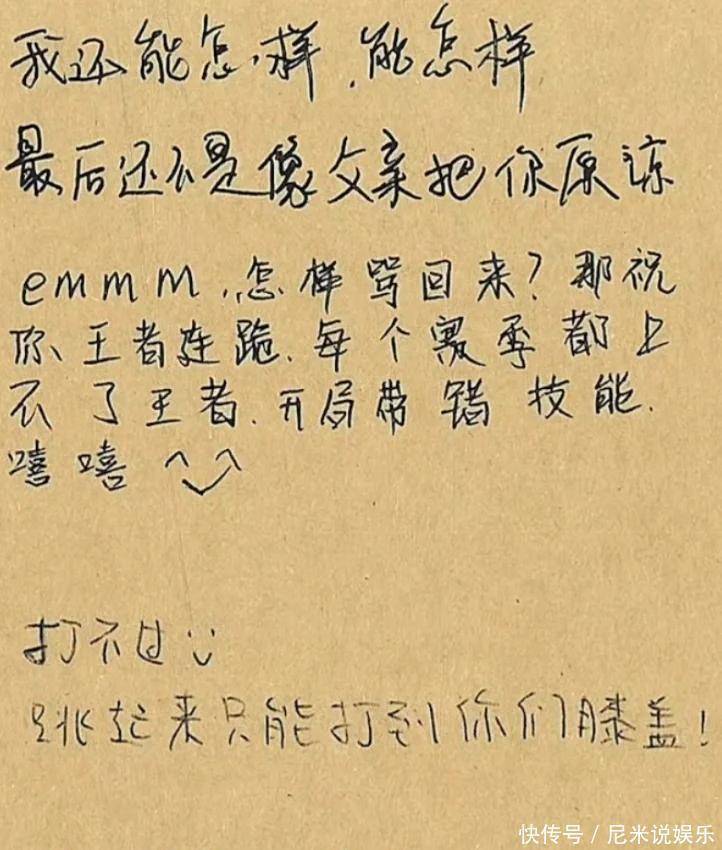 我还能怎样,能怎样
最后还不是像父亲把你原谅
emmm,怎样骂回来?那祝
你王者连跪.每个赛季都上
不了王者.开局带错技能.
嘻嘻^‿^
打不过:)
跳起来只能打到你们膝盖!
快传号/尼米说娱乐